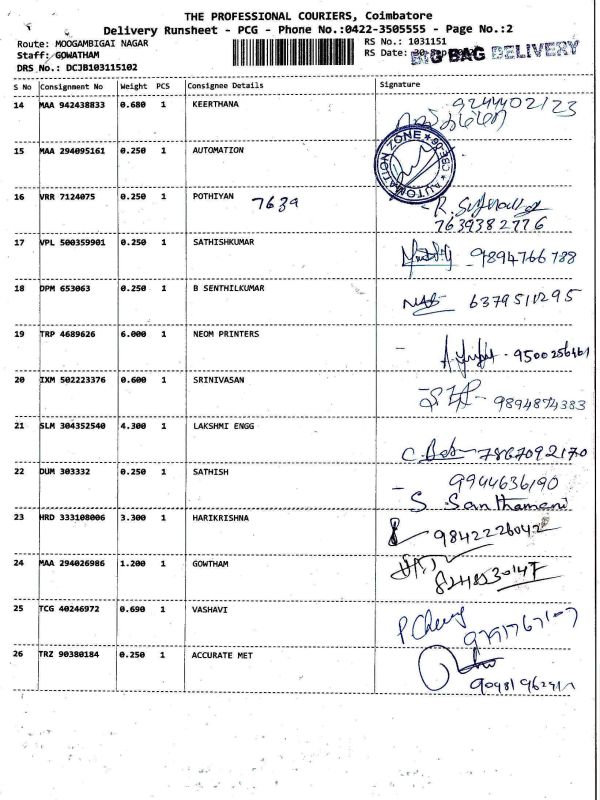 THE PROFESSIONAL COURIERS, Coimbatore
Delivery Runsheet - PCG - Phone No.:0422-3505555 - Page No.:2
Route: MOOGAMBIGAI NAGAR
RS No.: 1031151
Staff: GOWATHAM
RS Date:
BIG BAG DELIVERY
DRS No.: DCJB103115102
S No Consignment No Weight PCS Consignee Details Signature
14 MAA 942438833 0.680 1 KEERTHANA 9244402123
15 MAA 294095161 0.250 1 AUTOMATION AUTOMATION ZONE
16 VRR 7124075 0.250 1 POTHIYAN 7639
7639382776
17 VPL 500359901 0.250 1 SATHISHKUMAR 9894766788
18 DPM 653063 0.250 1 B SENTHILKUMAR 6379511295
19 TRP 4689626 6.000 1 NEOM PRINTERS 9500256461
20 IXM 502223376 0.600 1 SRINIVASAN 9894874383
21 SLM 304352540 4.300 1 LAKSHMI ENGG 7867092170
22 DUM 303332 0.250 1 SATHISH 9944636190
S. Santhamani
23 HRD 333108006 3.300 1 HARIKRISHNA 9842226042
24 MAA 294026986 1.200 1 GOWTHAM
25 TCG 40246972 0.690 1 VASHAVI
26 TRZ 90380184 0.250 1 ACCURATE MET